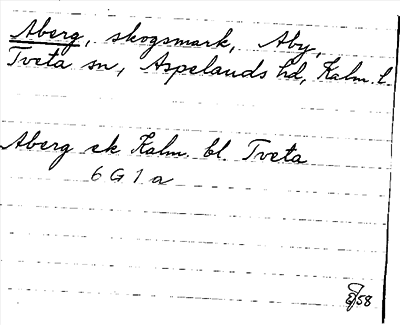 Aberg, skogsmark, Aby,
Tveta sn, Aspelands hd, Kalm. l.
Aberg ek Kalm. bl. Tveta
6 G 1 a
/58